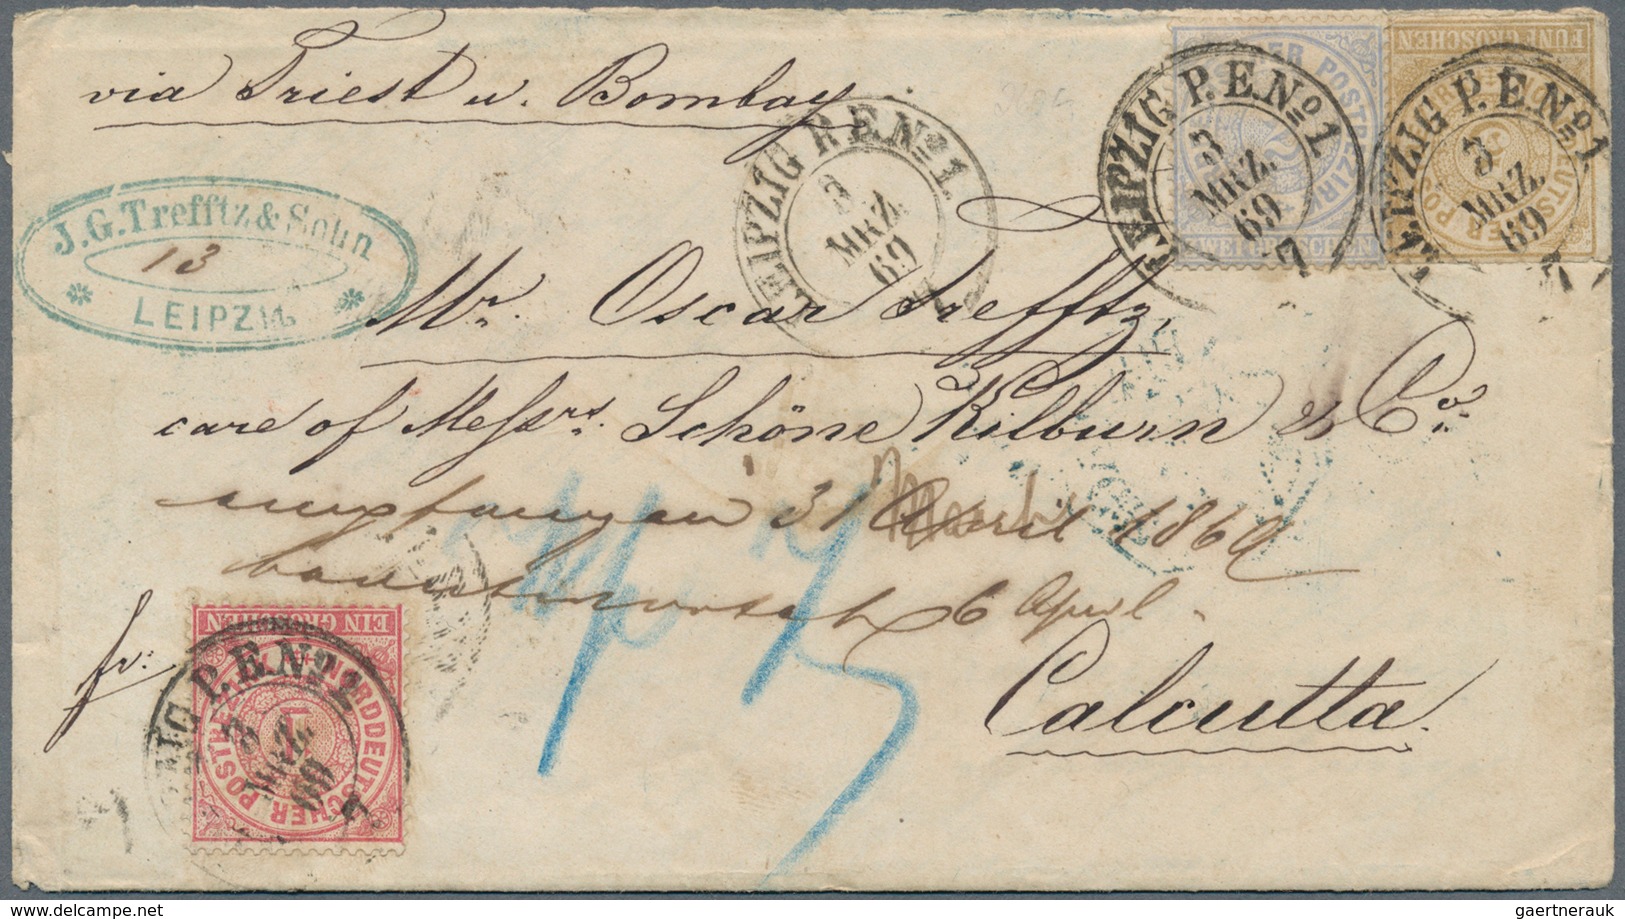 via Triest u. Bombay
J.G. Trefftz & Sohn
13
LEIPZIG.
LEIPZIG P.E.No.1.
3
MRZ.
69
LEIPZIG P.E.No.1
3
MRZ.
69
7
ZWEI GROSCHEN
FÜNF GROSCHEN
LEIPZIG P.E.No.1
3
MRZ.
69
7
Mr. Oscar Trefftz,
care of Messrs. Schöne Kilburn & Co.
empfangen 31 March 1869
beantwortet 6 April.
fr.
Calcutta.
EIN GROSCHEN
NORDDEUTSCHER POSTBEZIRK
1
LEIPZIG P.E.No.1
3
MRZ.
69
gaertnerauk